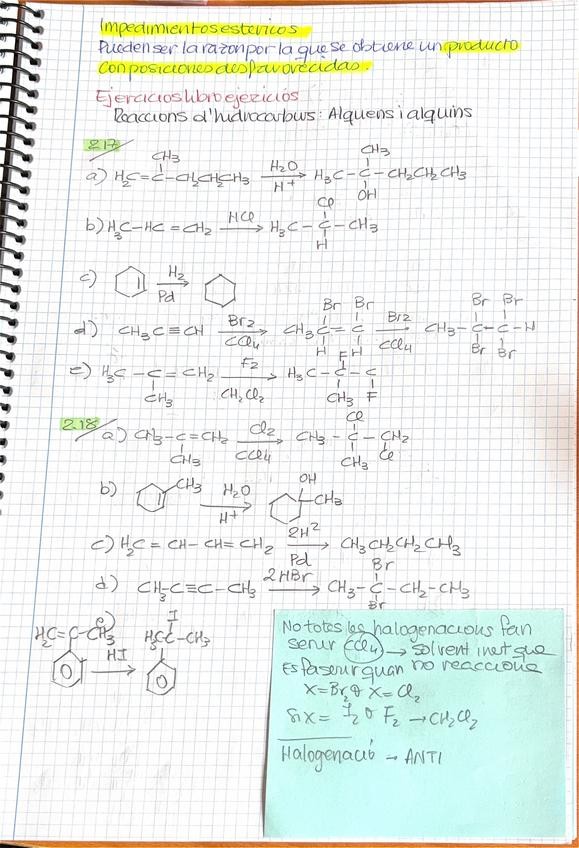 Impedimientos estericos
Pueden ser la razon por la que se obtiene un producto
con posiciones desfavorecidas.
Ejercicios libro ejezicios
Reaccions d'hidrocarburs: Alquens i alquins
2.17
a) H₂C=C(CH₃)-CH₂CH₂CH₃ →(H₂O, H⁺) H₃C-C(CH₃)(OH)-CH₂CH₂CH₃
b) H₃C-HC=CH₂ →(HCl) H₃C-C(Cl)(H)-CH₃
c) →(H₂, Pd)
d) CH₃C≡CH →(Br₂, CCl₄) CH₃C(Br)(H)=C(Br)(H) →(Br₂, CCl₄) CH₃-C(Br)(Br)-C(Br)(Br)-H
e) H₃C-C(CH₃)=CH₂ →(F₂, CH₂Cl₂) H₃C-C(F)(CH₃)-C-F
2.18
a) CH₃-C(CH₃)=CH₂ →(Cl₂, CCl₄) CH₃-C(Cl)(CH₃)-CH₂Cl
b) CH₃ →(H₂O, H⁺) OH CH₃
c) H₂C=CH-CH=CH₂ →(2H², Pd) CH₃CH₂CH₂CH₃
d) CH₃-C≡C-CH₃ →(2HBr) CH₃-C(Br)(Br)-CH₂-CH₃
e) H₂C=C-CH₃ →(HI) H₃C-C(I)-CH₃
No totes les halogenacions fan
servir CCl₄ → solvent inert que
Es fa servir quan no reacciona
X=Br₂ o X=Cl₂
si X= I₂ o F₂ → CH₂Cl₂
Halogenació → ANTI